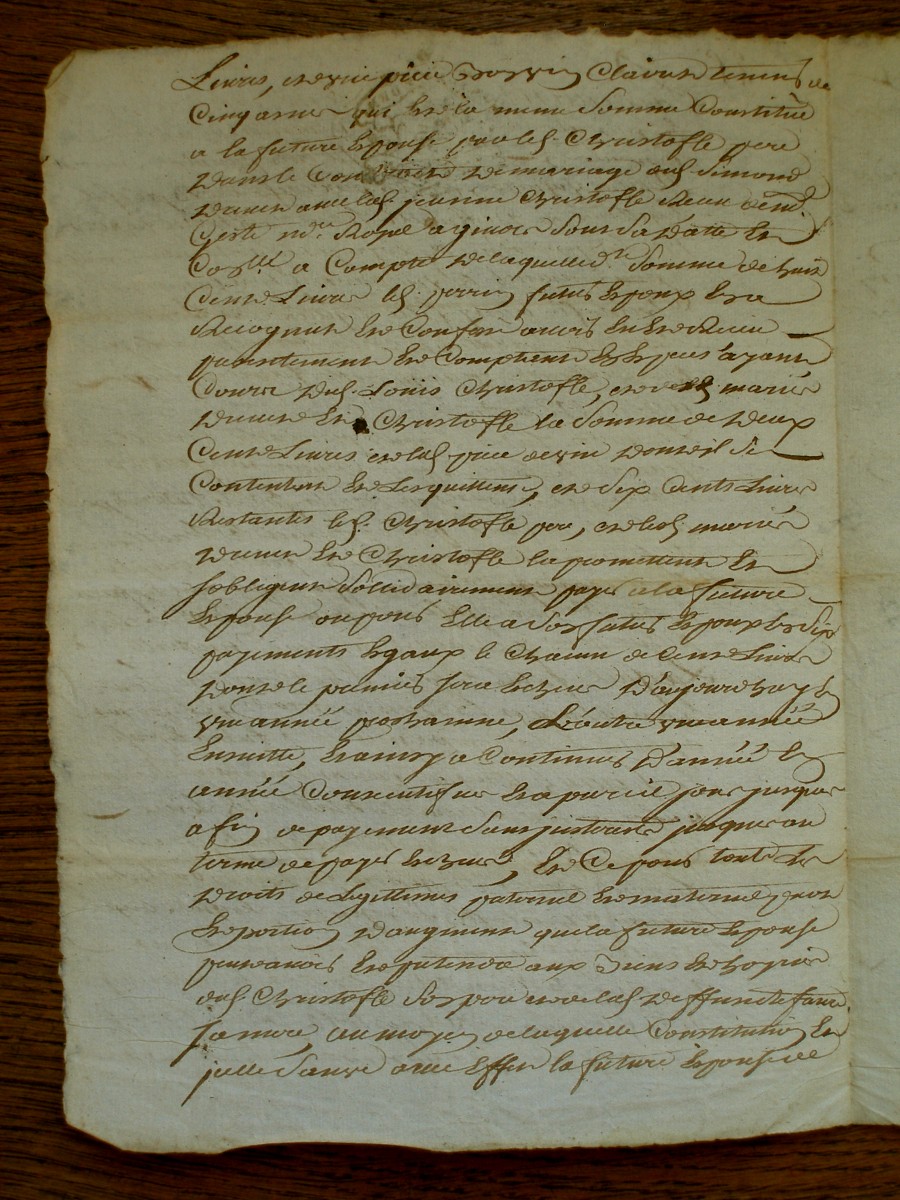 Livres, et une piece Claire tenent de
Cinq asnes qui est la meme Somme Constituée
a la future Epouse par led. Christofle pere
dans le Contract de mariage dud. Simond
avec lad. jeanne Christofle Receu
Royal Sous sa datte Et
a Compte de laquelle de. Somme de huit
Cents Livres led. perrin futur Epoux Et a
Recogneu Et Confesse avoir Eu Et Receu
presentement Et Comptent Especes ayant
Cours dud. Louis Christofle, et desd. mariés
Et Christofle la Somme de deux
Cents Livres et lad. piece de vin dont il se
Contente Et Les quitte, et six Cents Livres
Restantes led. Christofle pere, et lesd. mariés
Et Christofle la promettent Et
sobligent Sollidairement payer a la future
Epouse ou pour Elle a son futur Epoux En Six
payements Egaux le Chacun de Cent Livres
dont le premier sera Echeu D'aujourd'huy En
une année prochaine, L'autre une année
Ensuitte, Et ainsy a Continuer D'année En
année Consecutifves Et a pareil jour jusques
a fin de payement Sans jnterets jusques au
terme de payer Echeu, Et Ce pour touts Les
Droits de Legittimes paternel Et maternel part
Et portion D'augment que la future Epouse
peut avoir Et pretendre aux Biens Et hoyrie
dud. Christofle Son pere et de lad. deffuncte faure
sa mere, au moyen de laquelle Constitution Et
jcelle Sauve avec Effet la future Epouse de